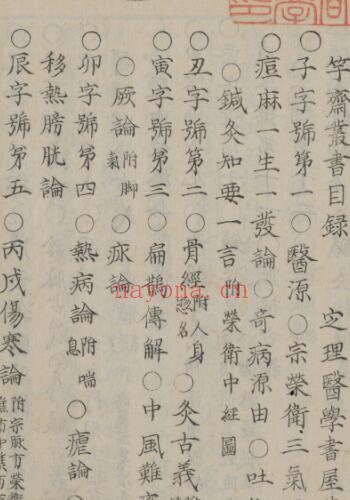 竽齋叢書目録 定理醫學書屋
○子字號第一○醫源○宗榮衛三氣
○痘麻一生一發論○奇病源由○吐
○鍼灸知要一言附榮衛中經圖
○丑字號第二○骨經附人身總名○灸古義
寅字號第三○扁鵲傳解○中風難
○厥論附脚氣○疝論
○卯字號第四○熱病論附喘息○瘧論
移熱膀胱論
○辰字號第五○丙戌傷寒論附宗脈榮衛
mayona.cn